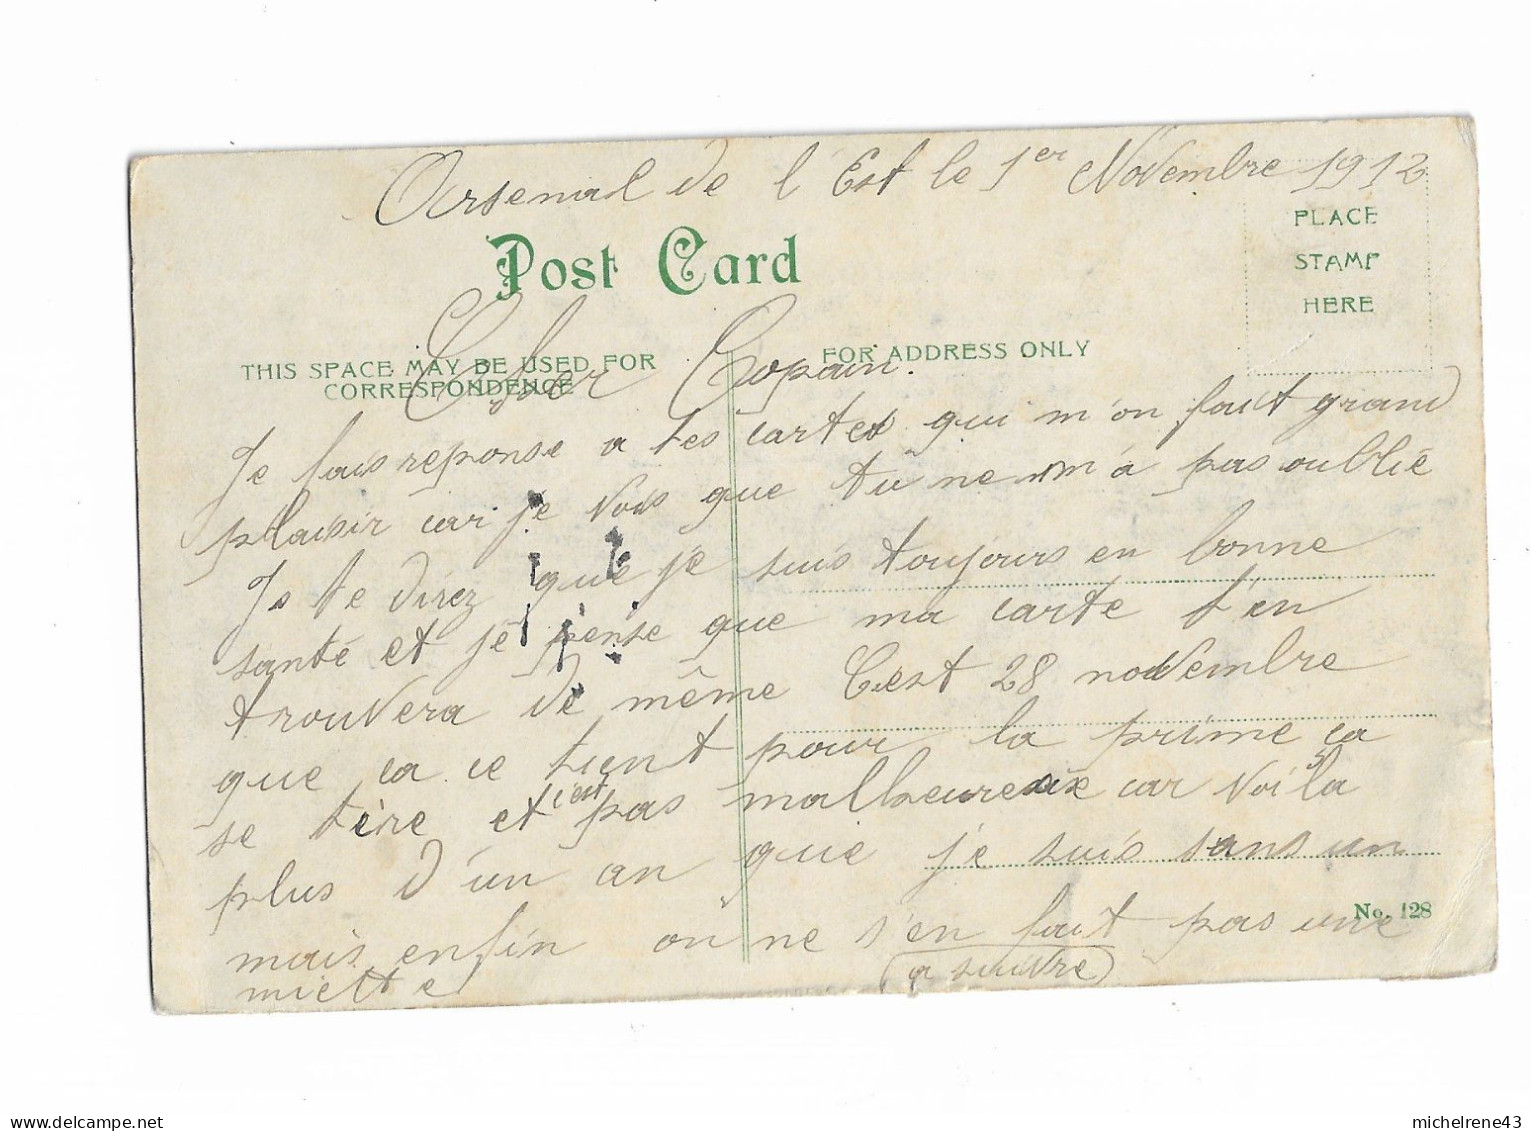 Arsenal de l Est le 1er Novembre 1912
PLACE
STAMP
HERE
Post Card
THIS SPACE MAY BE USED FOR
CORRESPONDENCE
FOR ADDRESS ONLY
Cher Copain.
Je fais reponse a tes cartes qui m'on fait grand
plaisir car je vois que tu ne m'a pas oublié
Je te direz que je suis toujours en bonne
santé et je pense que ma carte t'en
trouvera de même C'est 28 novembre
que ca ce tient pour la prime ca
se tère et c'est pas malheureux car voila
plus d'un an que je suis sans un
No. 128
mais enfin on ne s'en fait pas une
miette
(a suivre)
michelrene43